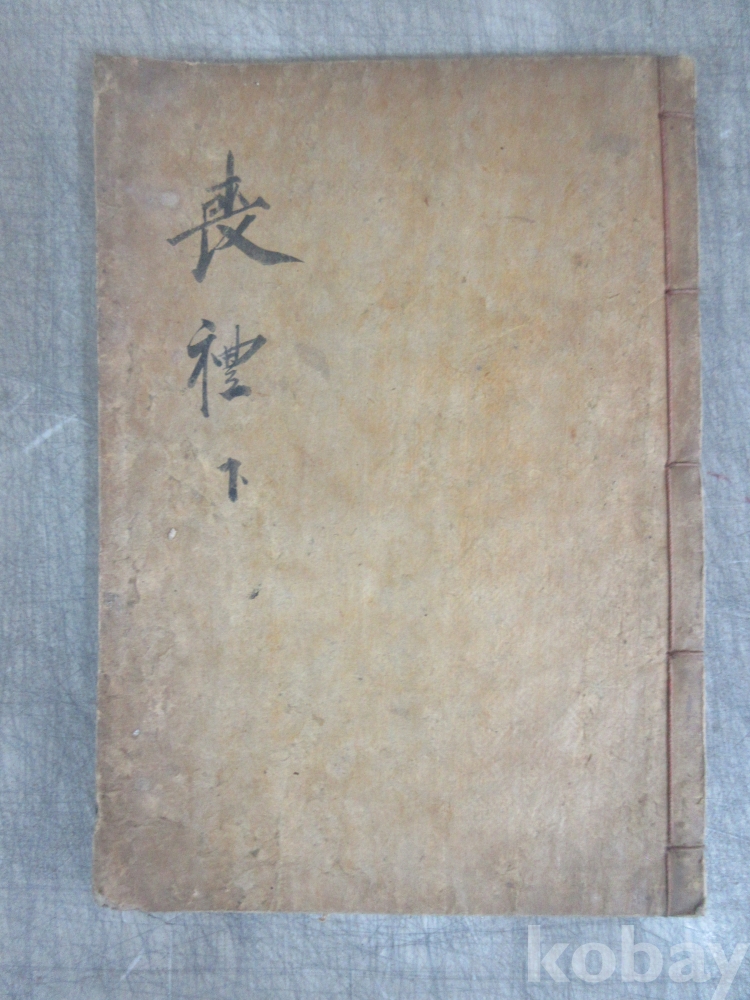 喪
禮
下
kobay